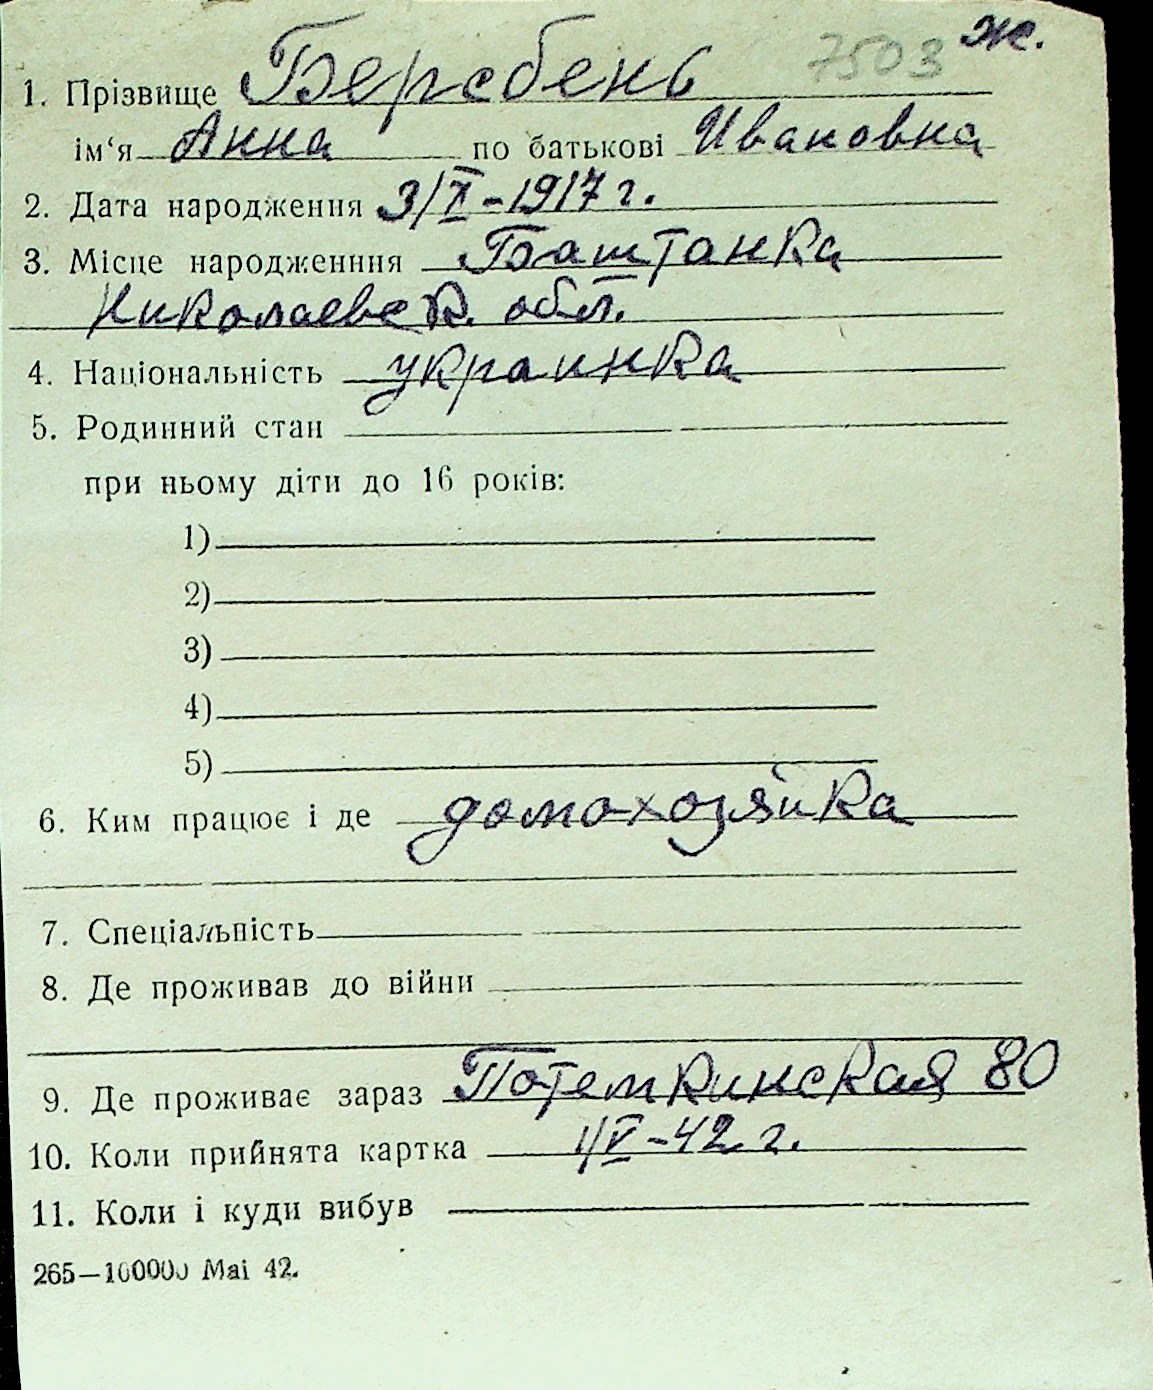 7503 ж.
1. Прізвище Берсбень
ім‘я Анна по батькові Ивановна
2. Дата народження 3/X-1917 г.
3. Місце народженння Баштанка
Николаевск. обл.
4. Національність украинка
5. Родинний стан
при ньому діти до 16 років:
1)
2)
3)
4)
5)
6. Ким працює і де домохозяйка
7. Спеціальність
8. Де проживав до війни
9. Де проживає зараз Потемкинская 80
10. Коли прийнята картка 1/V-42 г.
11. Коли і куди вибув
265—100000 Mai 42.